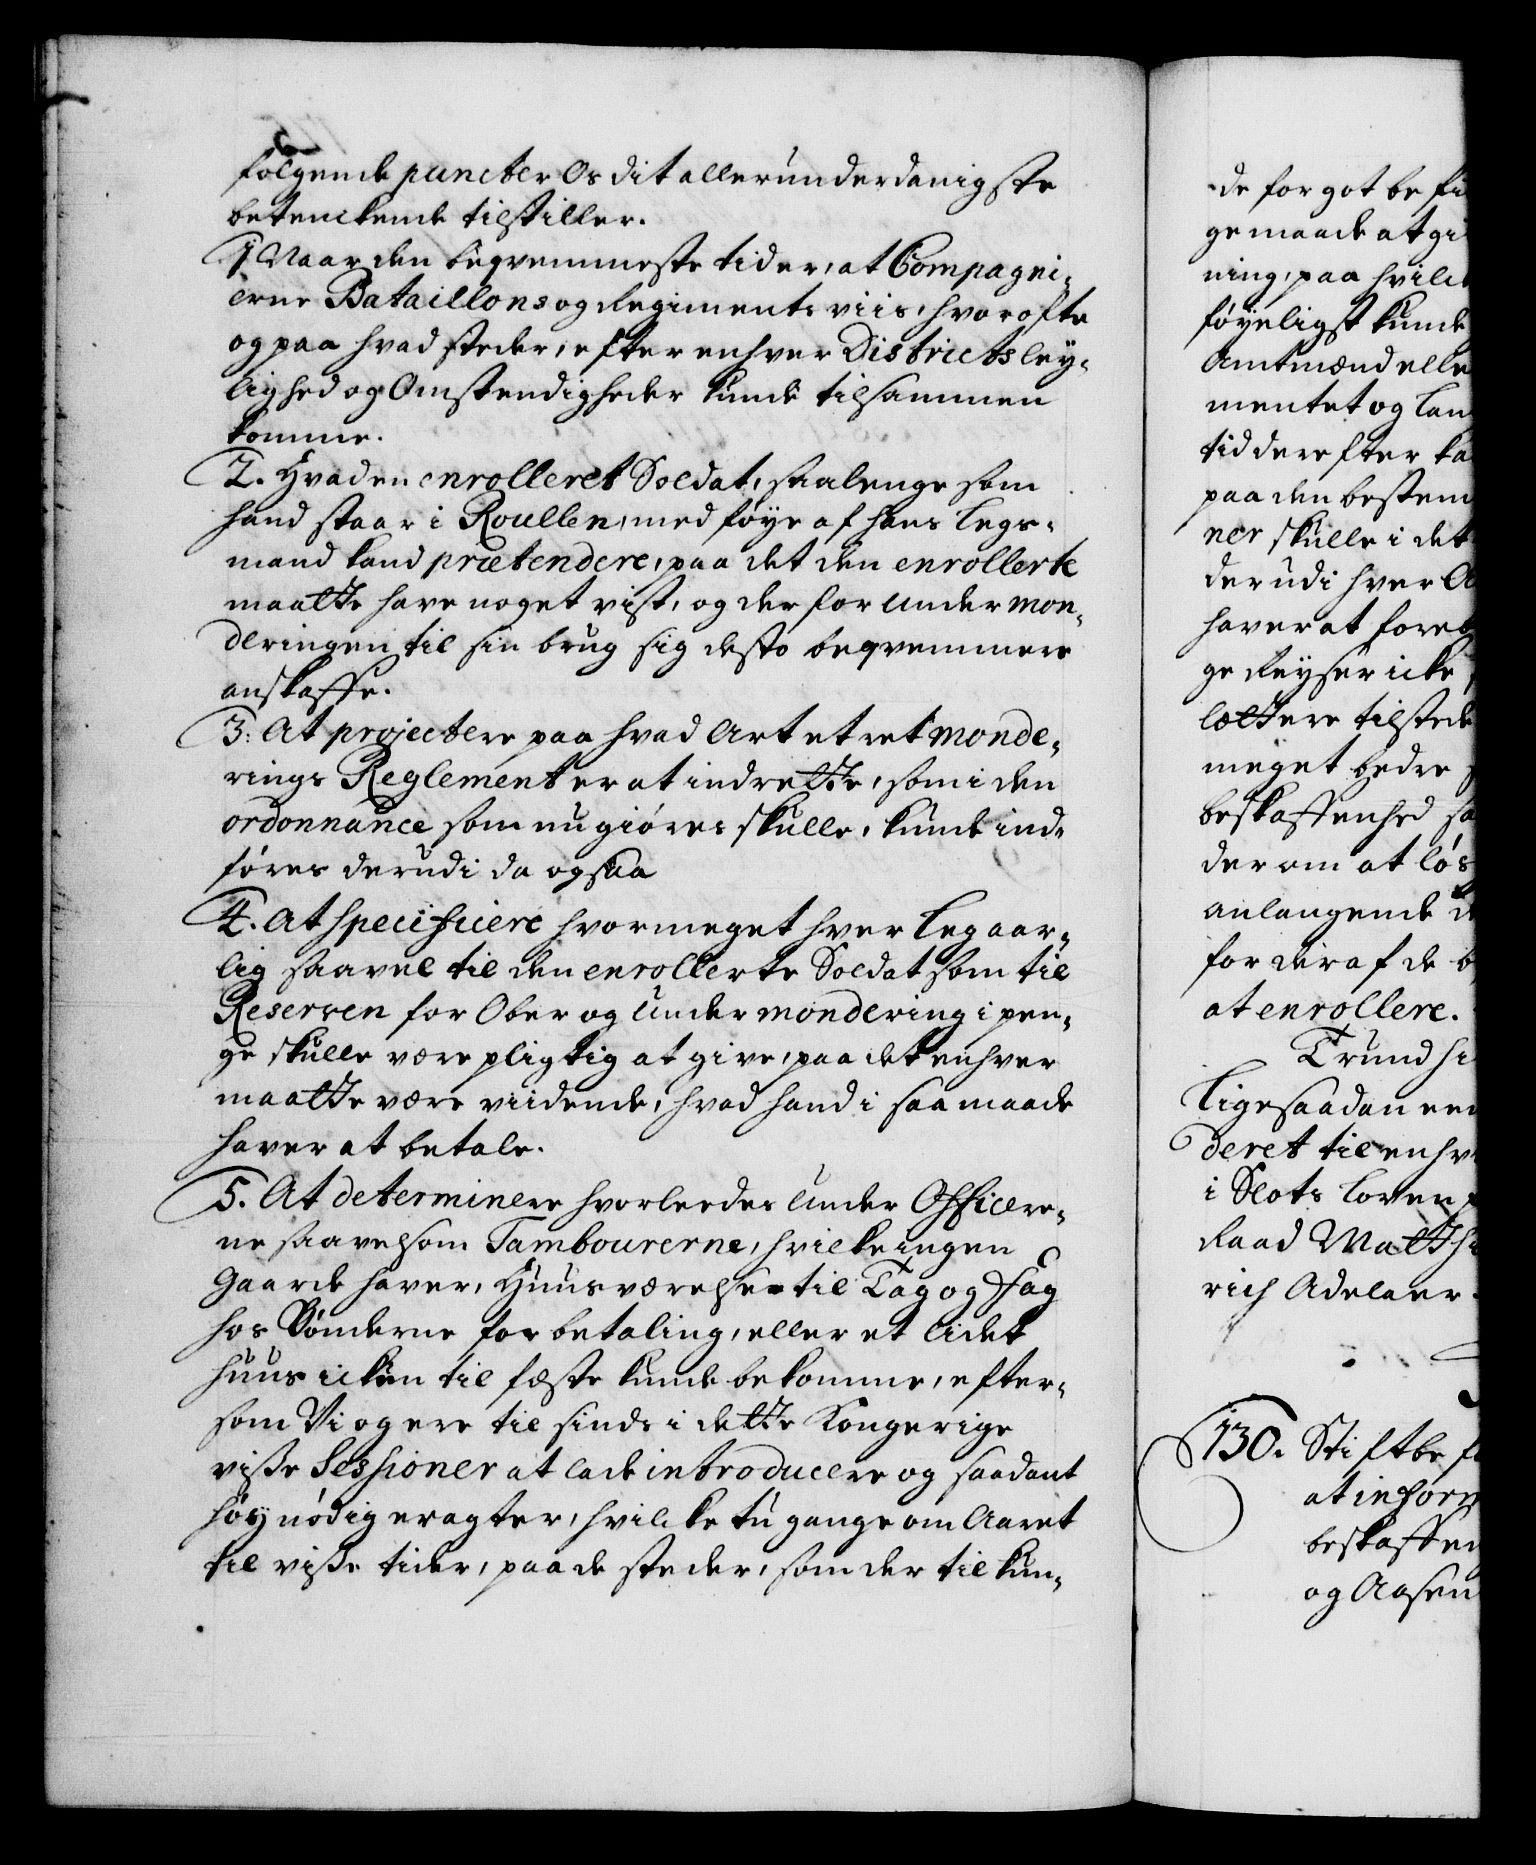 følgende puncter Os dit allerunderdanigste
betenckende tilstiller.
1 Naar den beqvemmeste tider, at Compagni-
erne Bataillons og Regiments viis, hvor ofte
og paa hvad steder, efter enhver Districts ley-
lighed og Omstendigheder kunde tilsammen
komme.
2. Hvad en enrolleret Soldat, saalenge som
hand staar i Roullen, med føye af hans Legs-
mand kand prætendere, paa det den enrollerte
maatte have noget vist, og derfor under mon-
deringen til sin brug sig desto beqvemmere
anskaffe.
3. At projectere paa hvad Art et ret monde-
rings Reglement er at indrette, som i den
ordonnance som nu giøres skulle, kunde ind-
føres derudi da ogsaa
4. At specificere hvormeget hver Leg aar-
lig saavel til den enrollerte Soldat som til
Reserven for Ober og Under mondering i pen-
ge skulle være pligtig at give, paa det enhver
maatte være viidende, hvad hand i saa maade
haver at betale.
5. At determinere hvorledes Under Officere-
ne saavelsom Tambourerne, hvilke ingen
Gaarde haver, Huusværelse til Tag og Fag
hos Bønderne for betaling, eller et lidet
huus icken til fæste kunde bekomme, efter-
som Vi og ere til sinds i dette Kongerige
visse Sessioner at lade introducere og saadant
høynødig eragter, hvilcke tu gange om Aaret
til visse tider, paa de steder, som der til kun-
de for got befi
gemaade at gi
ning, paa hvilc
føyeligst kunde
Amtmænd elle
mentet og Lan
tid derefter ka
paa den bestem
ner skulle i det
derudi hver A
haver at foret
ge Reyser icke
lættere tilstede
meget bedre
beskaffenhed sa
der om at løs
anlangende d
for deraf de b
at enrollere.
Trundhi
Ligesaadan een
deret til enhv
i Slots Loven
Raad Matthi
rich Adelaer
130. Stiftbef
at inform
beskaffen
og Aasen